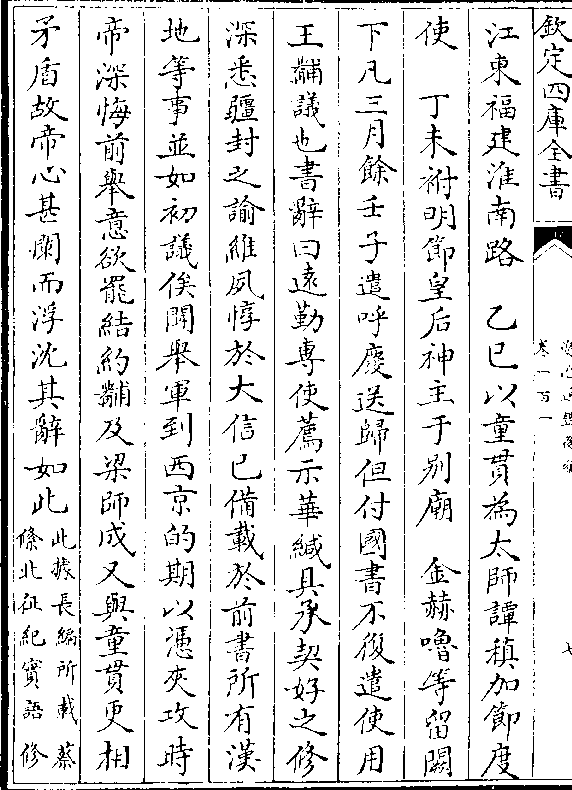 欽定四庫全書
卷一百一
七
江東福建淮南路　乙巳以童貫為太師譚稹加節度
使　丁未祔明節皇后神主于别廟　金赫嚕等留闕
下凡三月餘壬子遣呼慶送歸但付國書不復遣使用
王黼議也書辭曰遠勤專使薦示華緘具承契好之修
深悉疆封之諭維夙惇於大信已備載於前書所有漢
地等事並如初議俟聞舉軍到西京的期以憑夾攻時
帝深悔前舉意欲罷結約黼及梁師成又與童貫更相
矛盾故帝心甚闌而浮沈其辭如此此據長編所載蔡
絛北征紀實語修